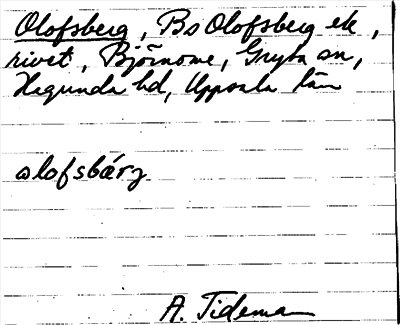 Olofsberg, Bs Olofsberg ek,
rivet, Björnome, Gryta sn,
Hagunda hd, Uppsala län
olofsbärj
A. Tideman